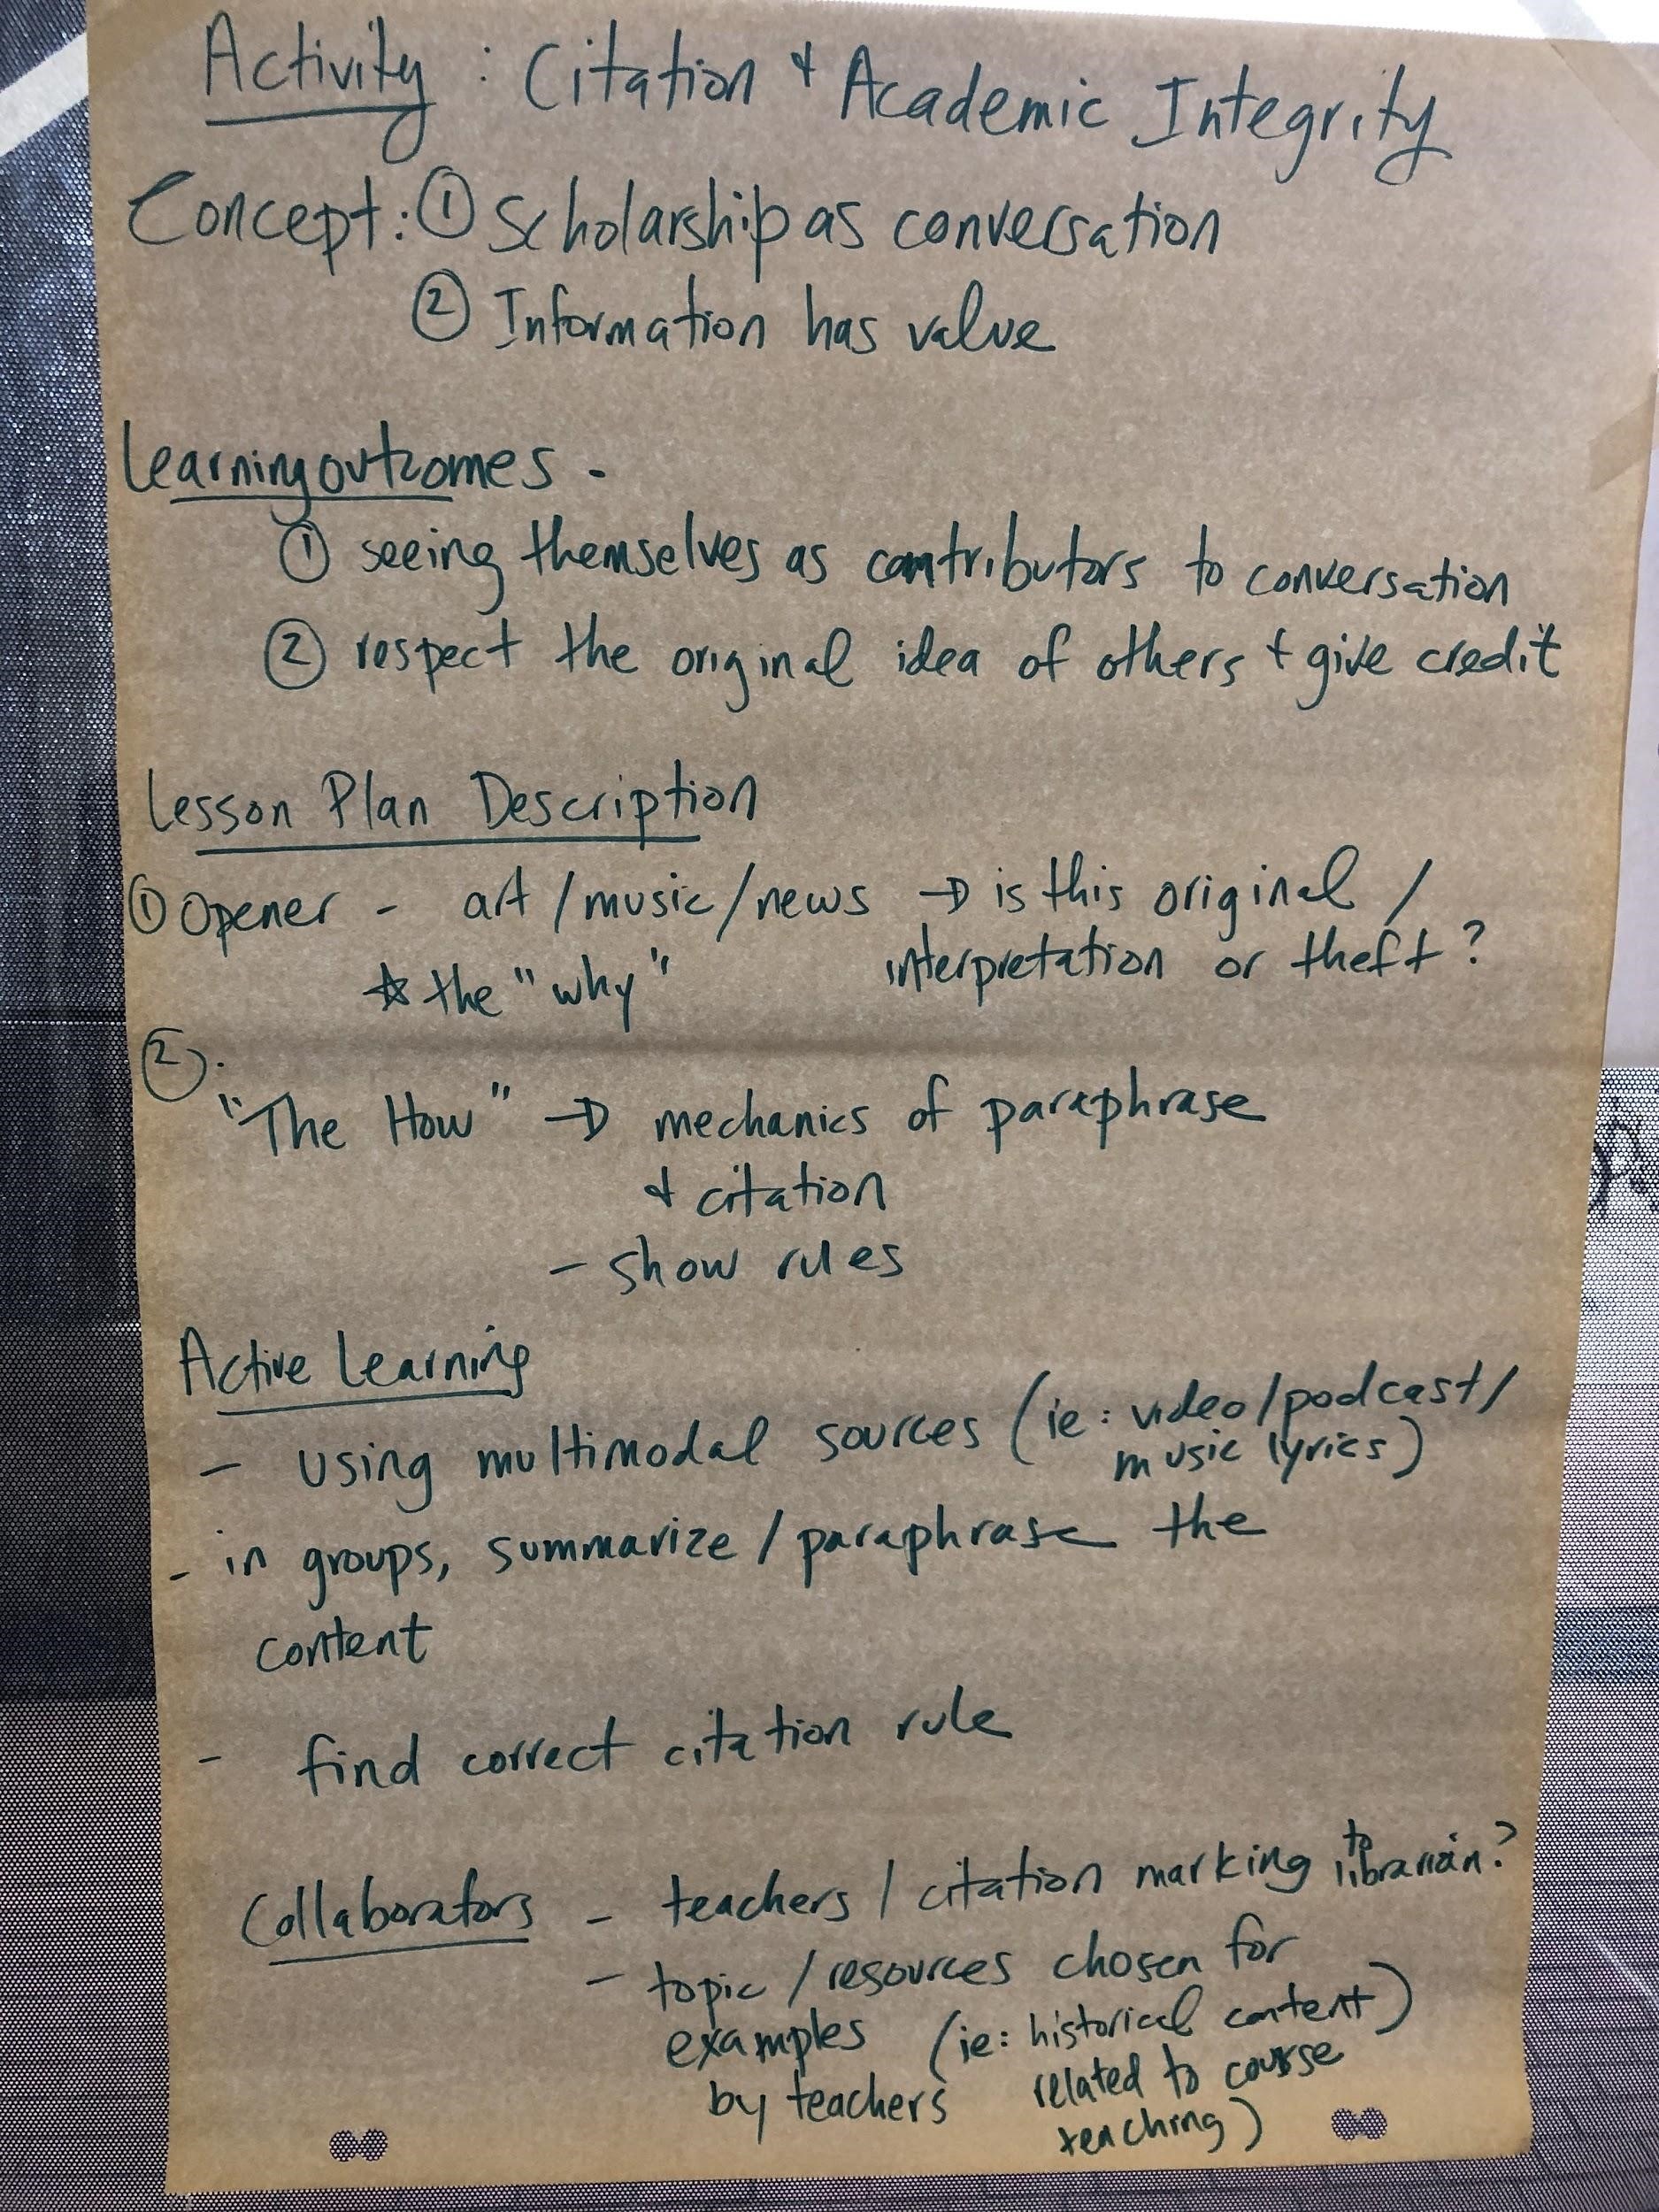 Activity : Citation & Academic Integrity
Concept: ① Scholarship as conversation
② Information has value
Learning outcomes -
① seeing themselves as contributors to conversation
② respect the original idea of others & give credit
Lesson Plan Description
① Opener - art/music/news → is this original /
☆ the "why" interpretation or theft?
②.
"The How" → mechanics of paraphrase
& citation
- show rules
Active Learning
- using multimodal sources (ie: video/podcast/
music lyrics)
- in groups, summarize / paraphrase the
content
- find correct citation rule
Collaborators - teachers / citation marking to librarian?
- topic / resources chosen for
examples (ie: historical content)
by teachers related to course
teaching)